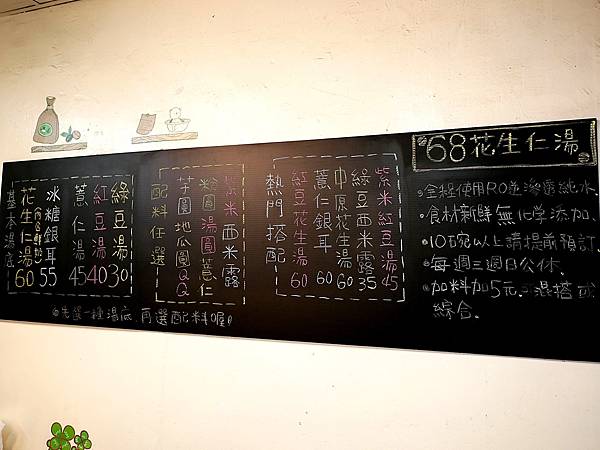 68花生仁湯
全程使用RO逆滲透純水、
食材新鮮無化學添加、
10碗以上請提前預訂、
每週三週日公休、
加料加5元、混搭或
綜合。
紫米紅豆湯45
綠豆西米露35
中原花生湯60
薏仁銀耳60
紅豆花生湯60
熱門搭配
紫米西米露
粉圓湯圓薏仁
芋圓地瓜圓QQ
配料任選
綠豆湯30
紅豆湯40
薏仁湯45
冰糖銀耳55
花生仁湯60
基本湯底
先選一種湯底 再選配料喔!